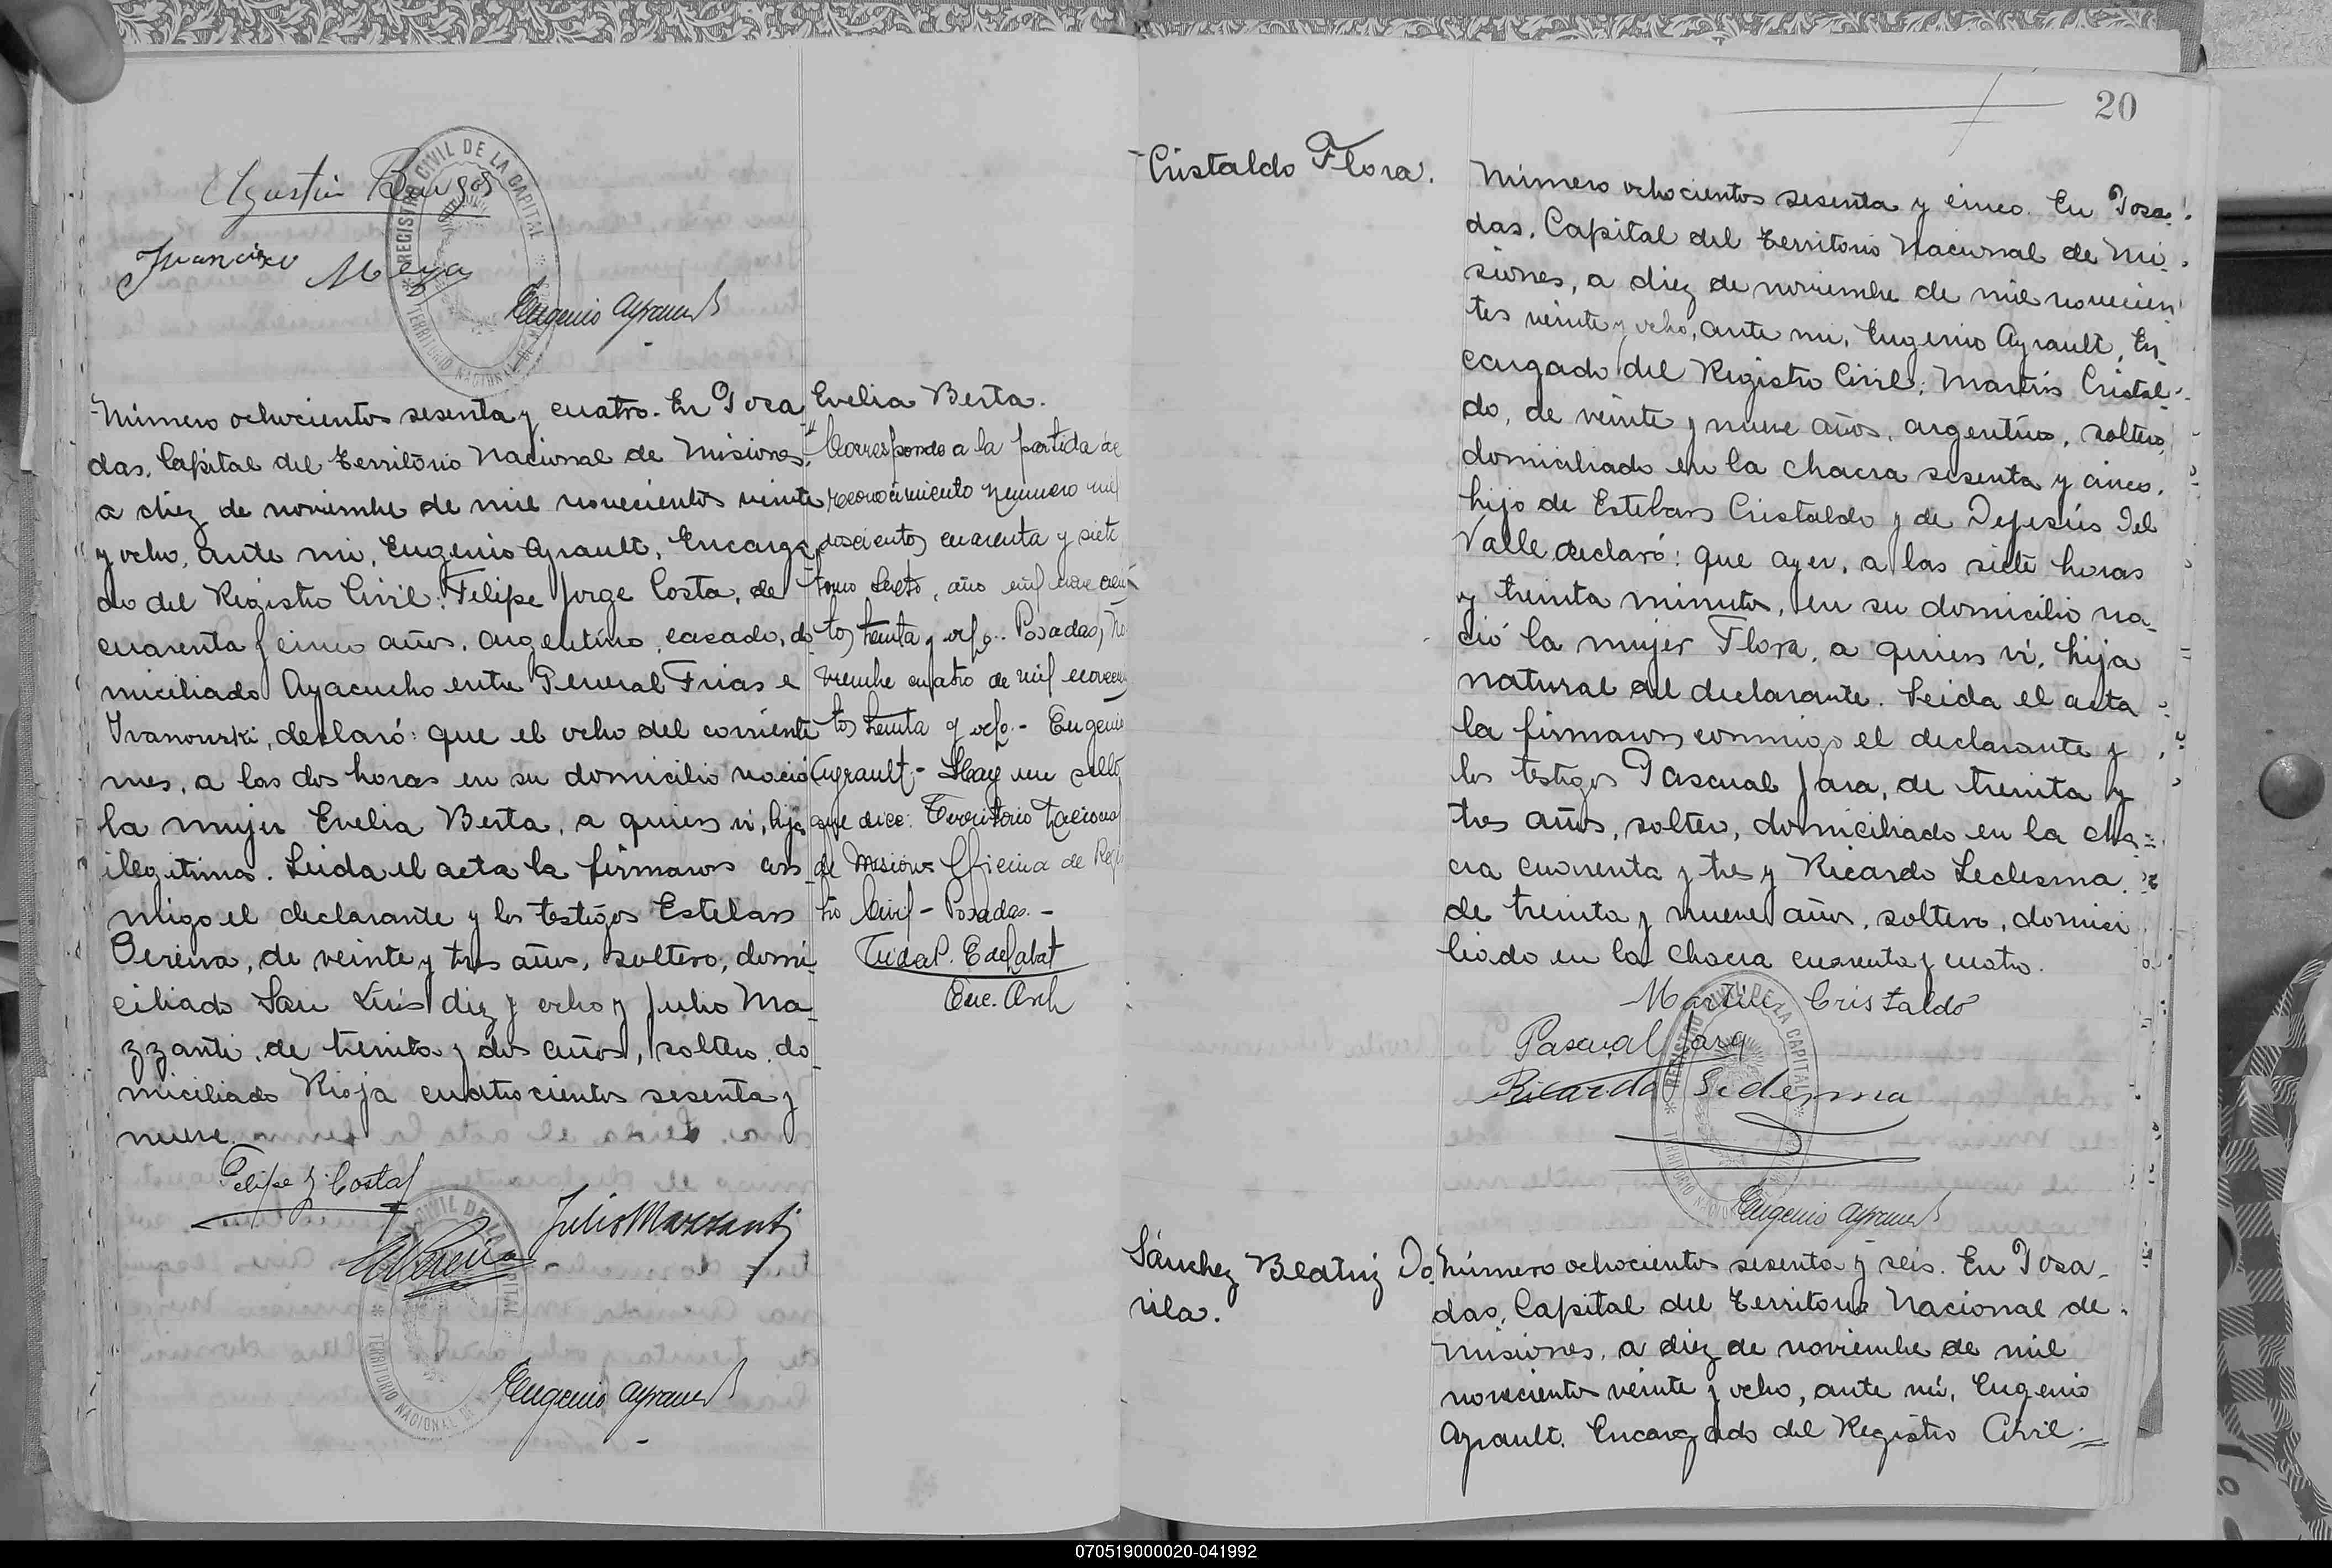 Agustín Burgos
Francisco Meza
REGISTRO CIVIL DE LA CAPITAL
TERRITORIO NACIONAL DE
Eugenio Ayrault
Número ochocientos sesenta y cuatro. En Posa
das, Capital del Territorio Nacional de Misiones,
a diez de noviembre de mil novecientos veinte
y ocho, ante mi, Eugenio Ayrault, Encarga
do del Registro Civil: Felipe Jorge Costa, de
cuarenta y cinco años, argentino, casado, do
miciliado Ayacucho entre General Frias e
Ivanowski, declaró: que el ocho del corriente
mes, a las dos horas en su domicilio nació
la mujer Evelia Berta, a quien vi, hija
ilegitima. Leida el acta la firmaron con
migo el declarante y los testigos Esteban
Pereira, de veinte y tres años, soltero, domi
ciliado San Luis diez y ocho y Julio Ma
zzanti, de treinta y dos años, soltero, do
miciliado Rioja cuatrocientos sesenta y
nueve.
Felipe J. Costa
Julio Mazzanti
REGISTRO CIVIL DE LA CAPITAL
TERRITORIO NACIONAL DE
Eugenio Ayrault
Evelia Berta.
Corresponde a la partida de
reconocimiento número mil
doscientos cuarenta y siete
tomo sexto, año mil novecien
tos treinta y ocho. Posadas, No
viembre cuatro de mil novecien
tos treinta y ocho.- Eugenio
Ayrault.- Hay un sello
que dice: Territorio Nacional
de Misiones Oficina de Regis
tro Civil - Posadas.-
Enc. Arch
20
Cristaldo Flora.
Número ochocientos sesenta y cinco. En Posa
das, Capital del Territorio Nacional de Mi
siones, a diez de noviembre de mil novecien
tos veinte y ocho, ante mi, Eugenio Ayrault, En
cargado del Registro Civil; Martin Cristal
do, de veinte y nueve años, argentino, soltero,
domiciliado en la chacra sesenta y cinco,
hijo de Esteban Cristaldo y de Dejesús Del
Valle declaró: que ayer, a las siete horas
y treinta minutos, en su domicilio na
ció la mujer Flora, a quien vi, hija
natural del declarante. Leida el acta
la firmaron conmigo el declarante y
los testigos Pascual Jara, de treinta y
tres años, soltero, domiciliado en la cha
cra cuarenta y tres y Ricardo Ledesma,
de treinta y nueve años, soltero, domici
liado en la chacra cuarenta y cuatro.
Martin Cristaldo
Pascual Jara
Ricardo Ledesma
REGISTRO CIVIL DE LA CAPITAL
TERRITORIO NACIONAL
Eugenio Ayrault
Sánchez Beatriz Do
rila.
Número ochocientos sesenta y seis. En Posa-
das, Capital del Territorio Nacional de
Misiones, a diez de noviembre de mil
novecientos veinte y ocho, ante mi, Eugenio
Ayrault, Encargado del Registro Civil.
070519000020-041992